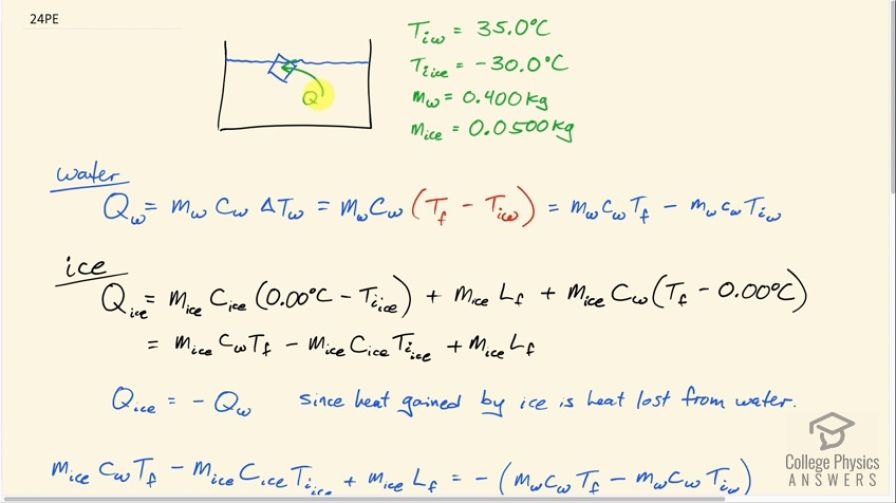 24PE
T_iw = 35.0°C
T_iice = -30.0°C
m_w = 0.400 kg
m_ice = 0.0500 kg
Q
water
Q_w = m_w C_w ΔT_w = m_w C_w (T_f - T_iw) = m_w C_w T_f - m_w C_w T_iw
ice
Q_ice = m_ice C_ice (0.00°C - T_iice) + m_ice L_f + m_ice C_w (T_f - 0.00°C)
= m_ice C_w T_f - m_ice C_ice T_iice + m_ice L_f
Q_ice = - Q_w since heat gained by ice is heat lost from water.
m_ice C_w T_f - m_ice C_ice T_iice + m_ice L_f = - (m_w C_w T_f - m_w C_w T_iw)
College Physics
ANSWERS